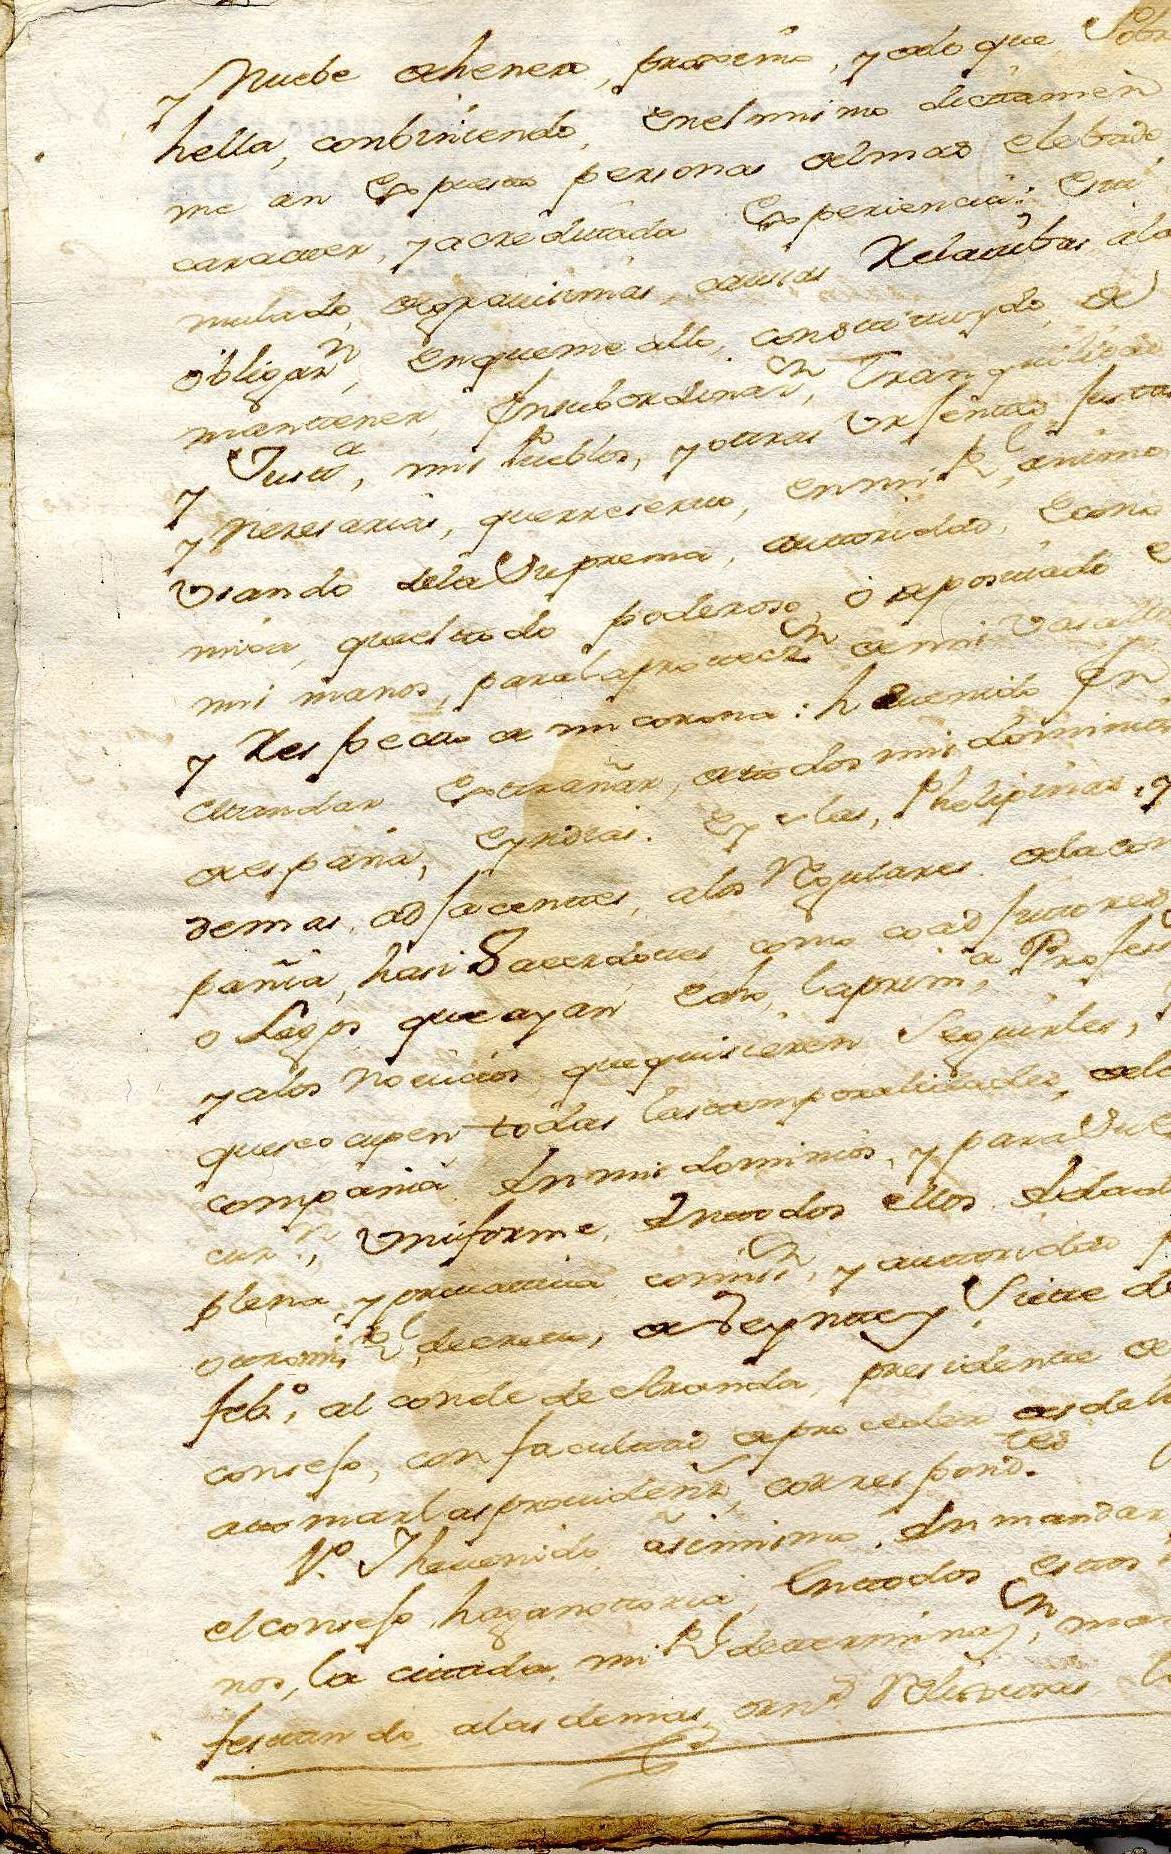 y Nuebe de henero, proximo, y lo que Sobre
hella, conbiniendo, en el mismo dictamen
me an Espuesto personas del mas elebado
caracter, y acreditada Esperiencia: Esti
mulado, de grauisimas, causas Relatibas ala
obligazn, en que me allo, constituydo, de
mantener, En subordinazn, Tranquilidad
y Justa, mis Pueblos, y otras Urjentes Justas
y neresarias, que rreseruo, en mi Rl animo
Usando dela Suprema, autoridad, Econo
mica, que el todo poderoso, a depositado en
mis manos, para la proteczn de mi Vasallos
y Respecto de mi corona: he uenido En
mandar Estrañar, de todos mis dominios
de españa, Eyndias. Eyslas, Pholipinas, y
demas, adjacentes, alos Regulares dela com
pañia, hasi Sacerdotes como coadjutores
o Legos que ayan echo, la prima Profess
y alos nouicios que quisieren Seguirles, y
que se ocupen todas las temporalidades, dela
compania En mis dominios, y para Su Exe
cun, Uniforme, En todos ellos E dado
plena y pribatiua comisn, y autoridad p
otro mi Rl decreto, de Veynte y Siete de
febo, al conde de Aranda, presidente de
consejo, con facultad de proceder desde lo
a tomar las prouidenz, correspondtes
No. I he uenido asimismo, En mandar
el consejo haga notoria, En todos Estos
nos, la citada, mi Rl determinazn, ma
festando alas demas, ornd Relixiosas